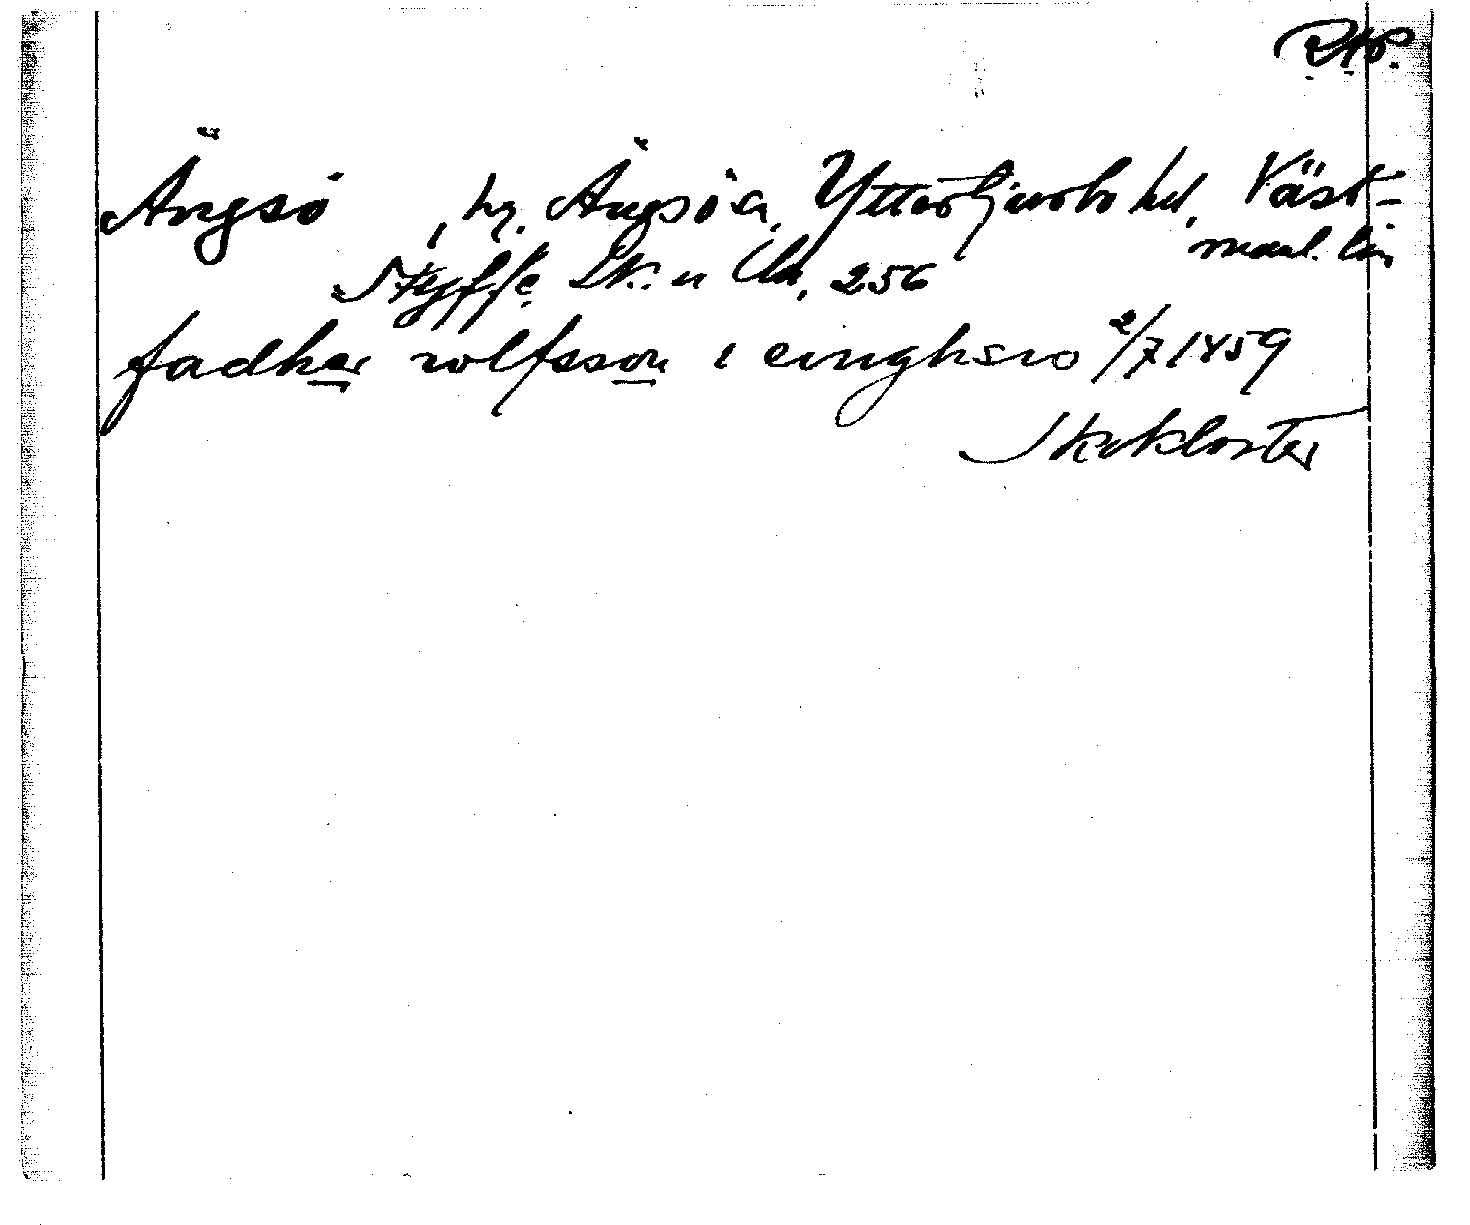 Ängsö, hg. Ängsö sn. Yttertjurbo hd, Väst-
manl. län
Styffe Sk. u Un. 256
fadher rolfsson i eingh 2/7 1459
Skokloster